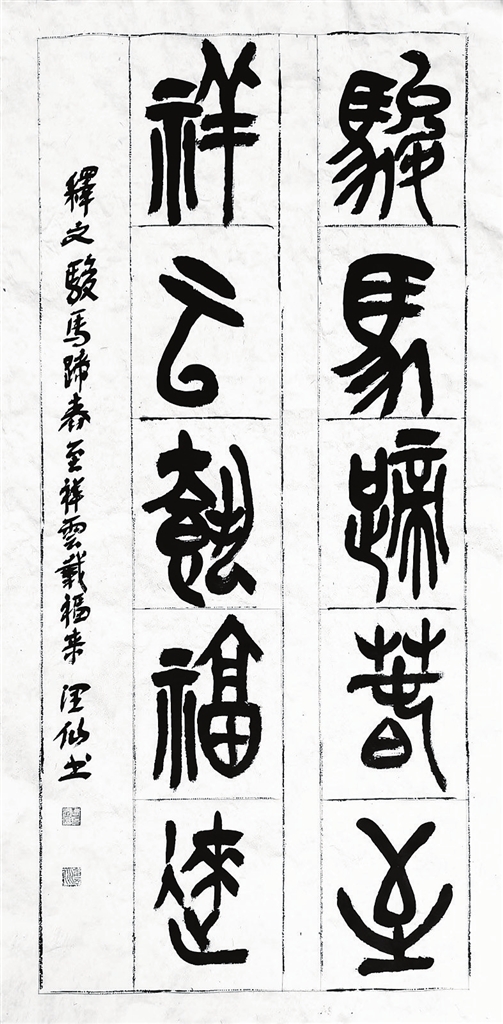 駿馬蹄春至
祥云載福來
釋文駿馬蹄春至祥雲載福来 仙书